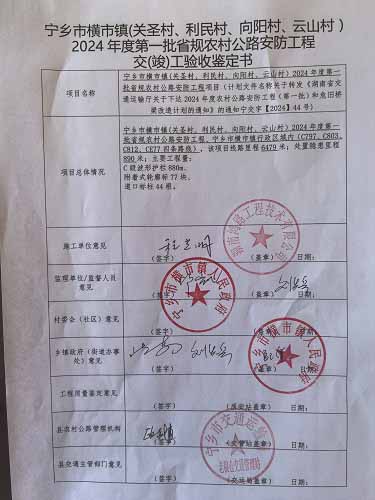 宁乡市横市镇(关圣村、利民村、向阳村、云山村)
2024年度第一批省规农村公路安防工程
交(竣)工验收鉴定书
项目名称
宁乡市横市镇(关圣村、利民村、向阳村、云山村)2024年度第一
批省规农村公路安防工程项目(计划文件名称关于转发《湖南省交
通运输厅关于下达2024年度农村公路安防工程(第一批)和危旧桥
梁改造计划的通知》的通知宁交字【2024】44号)
项目总体情况
宁乡市横市镇(关圣村、利民村、向阳村、云山村)2024年度第一
批省规农村公路安防工程,宁乡市横市镇行政区域内(C797、C803、
C812、CE77四条路线),该项目线路里程6479米;处置隐患里程
890米;主要工程量:
C级波形护栏880m。
附着式轮廓标77块。
道口标柱44根。
施工单位意见
(签字) (盖章) 日期:
监理单位/监督人员
意见
(签字) (盖章) 日期:
宁乡市横市镇人民政府
村委会(社区)意见
(签字) (盖章) 日期:
乡镇政府(街道办事
处)意见
(签字) (盖章) 日期:
宁乡市横市镇人民政府
工程质量鉴定意见
(签字) (质安站盖章) 日期:
县农村公路管理机构
(签字) 日期:
宁乡市交通运输
县交通主管部门意见
(签字) (盖章) 日期: